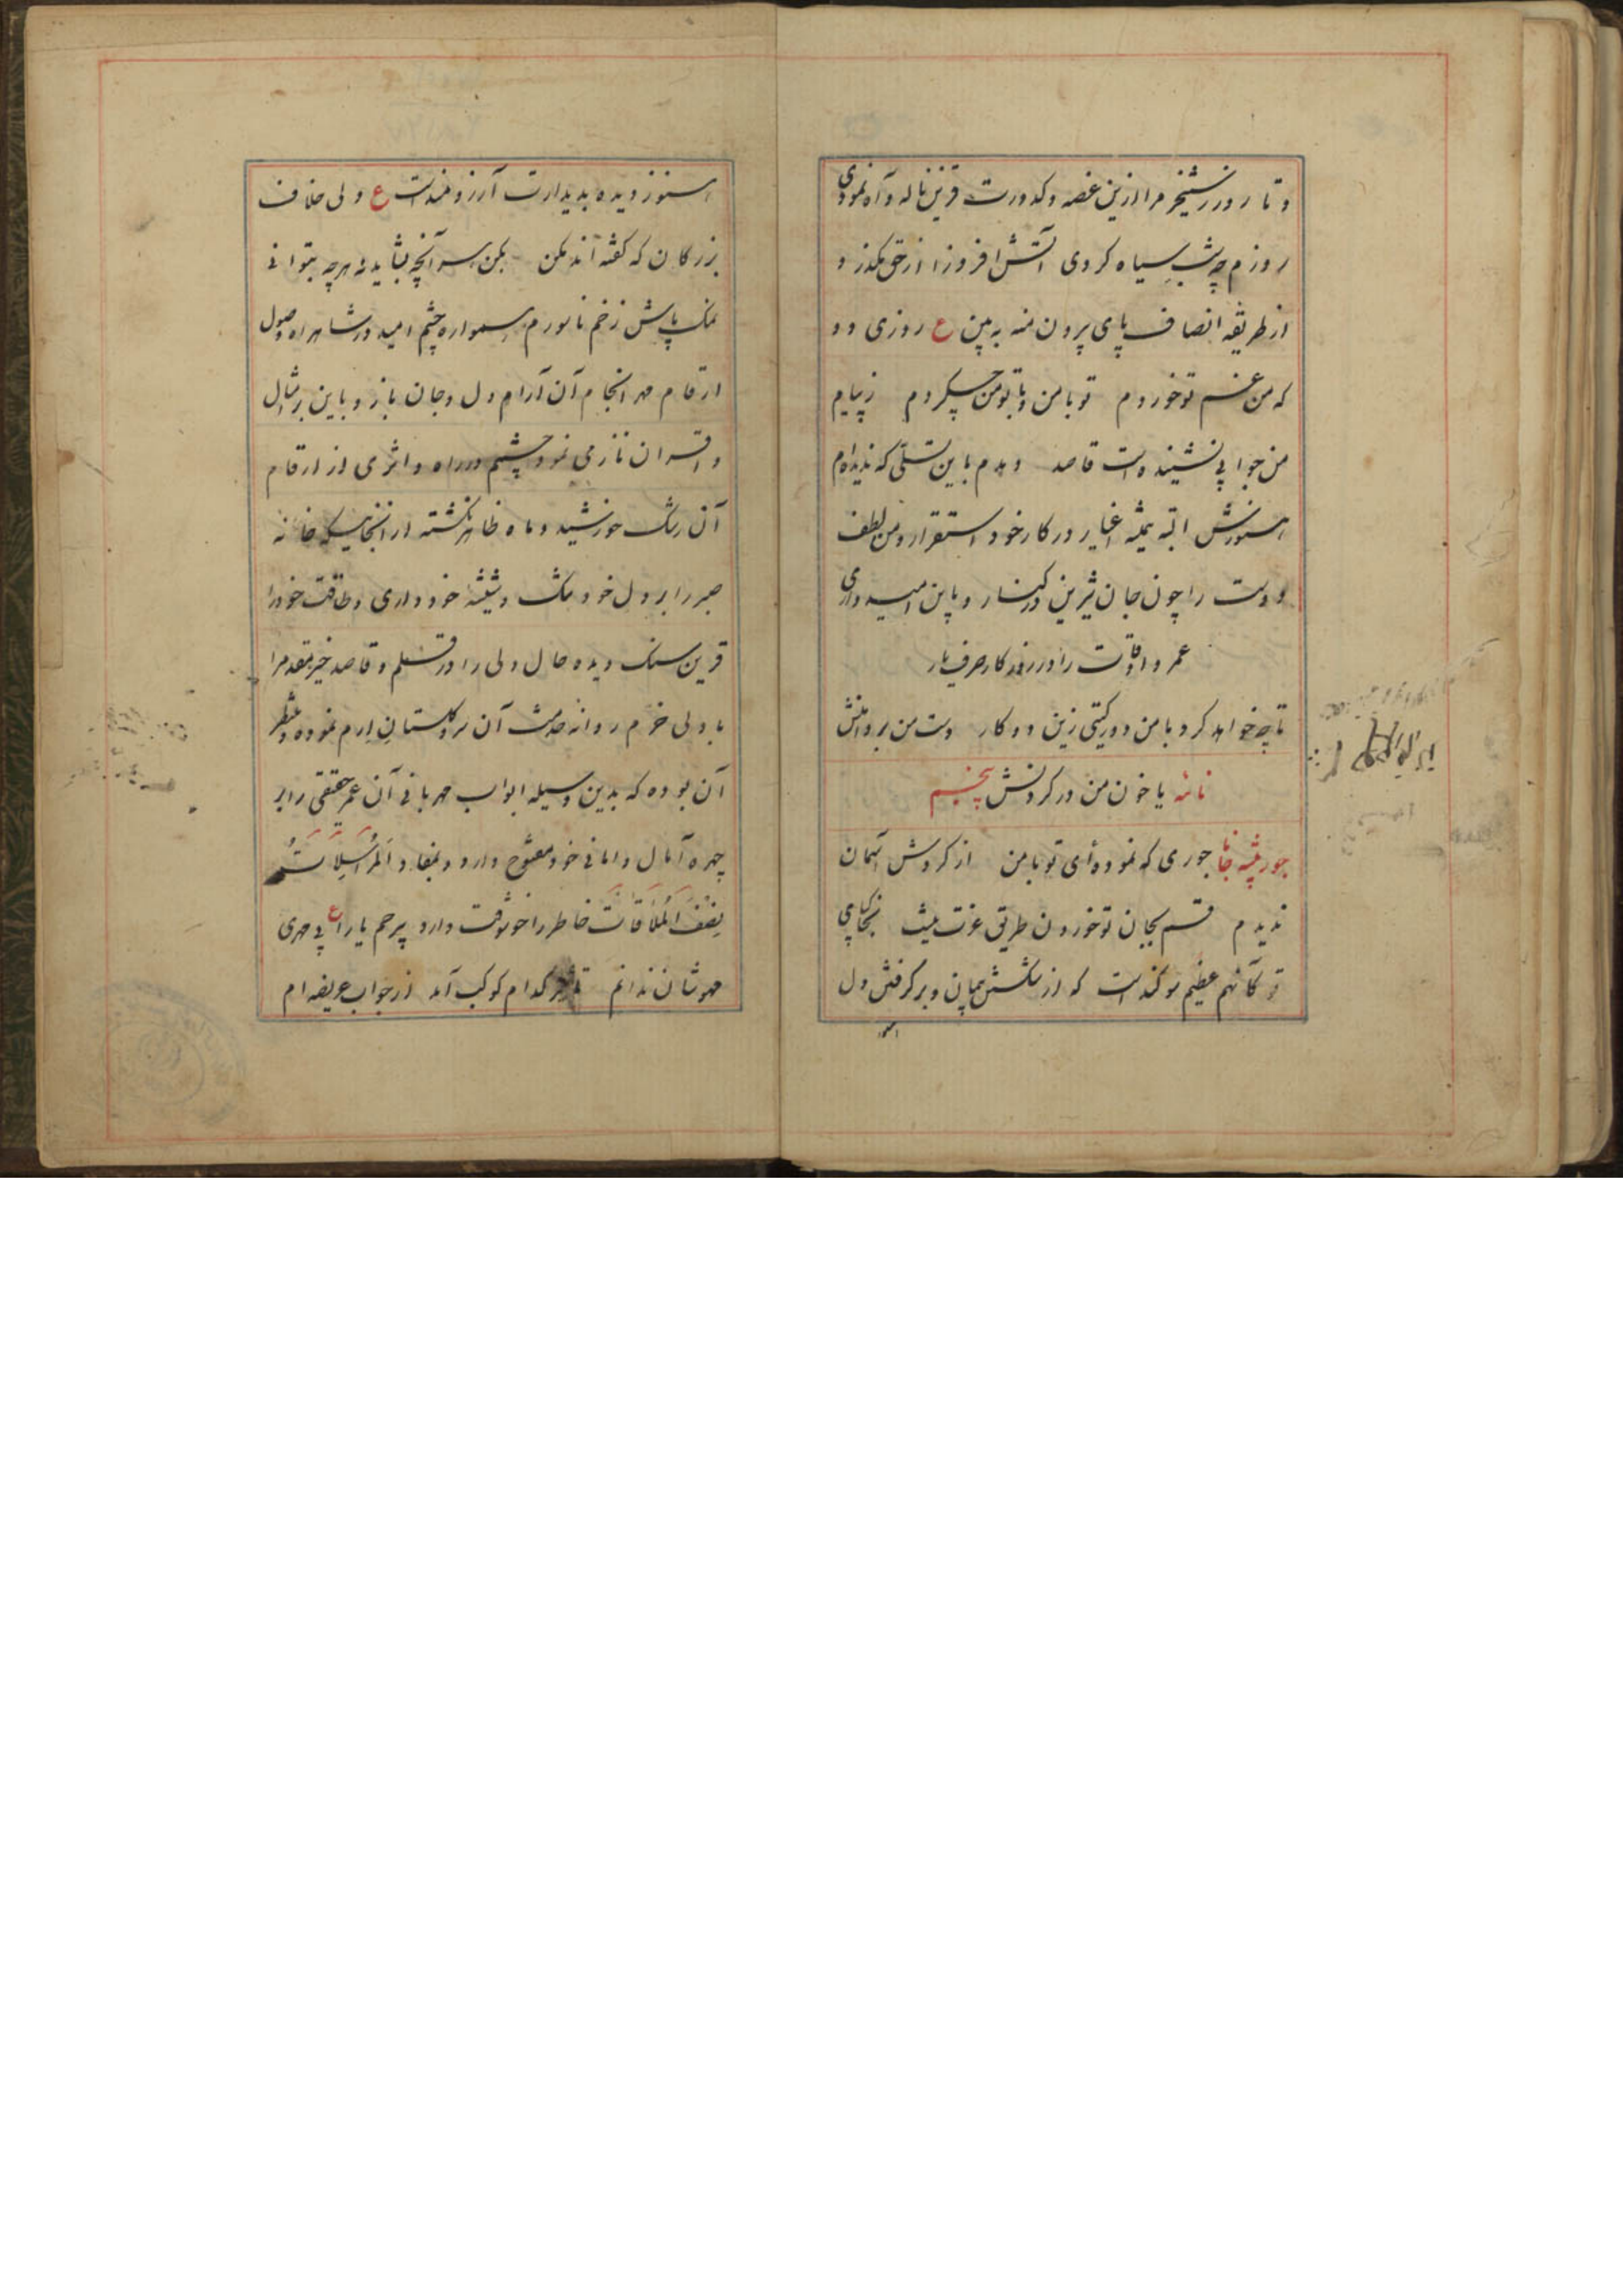 و تا روز رستخیز مرا ازین غصه و کدورت قرین ناله و آه نمودی
روزم چه شب سیاه کردی آتش افروز از حق مگذر و
از طریقه انصاف پای بیرون منه به بین ع روزی دو
که من غم تو خوردم تو با من و با تو من چکردم ز پیام
من جوابی نشنیده است قاصد دهدم باین تسلی که ندیده‌ام
هنوزش البته همیشه اغیار در کار خود استقرار و من لطف
دوست را چون جان شیرین در کنار و باین امیدواری
عمر و اوقات را در روزگار صرف یار
تا چه خواهد کرد با من دور گیتی زین دو کار دست من بر دامنش
یا خون من در گردنش نامه پنجم
جور پیشه جانا جوری که نموده‌ای تو با من از گردش آسمان
ندیدم قسم بجان تو خوردن طریق عزت نیست بخاکپای
تو کانهم عظیم سوگند است که از شکستن پیمان و برگرفتن دل
هنوز
هنوز دیده بدیدارت آرزومند است ع ولی خلاف
بزرگان که گفته‌اند مکن بکن هر آنچه بشاید نه هر چه بتوانی
نمک پاش زخم ناسورم همواره چشم امید در شاهراه وصول
ارقام مهر انجام آن آرام دل و جان باز و باین بر امثال
و اقران نازمی نمود چشم در راه و اثری از ارقام
آن رشک خورشید و ماه ظاهر نگشته از آنجائیکه خانه
صبر را بر دل خود تنگ و شیشه خودداری و طاقت خود را
قرین سنگ دیده حال دلی را در قلم و قاصد خیر مقدم را
با دلی خرم روانه خدمت آن سرو گلستان ارم نموده و منتظر
آن بوده که بدین وسیله ابواب مهربانی آن عمر حقیقی را بر
چهره آمال و امانی خود مفتوح دارد و بمفاد المراسلات
نصف الملاقات خاطر را خوشوقت دارد بیرحم یارا ع بی مهری
مهوشان ندانم تاثیر کدام کوکب آمد از جواب عریضه‌ام